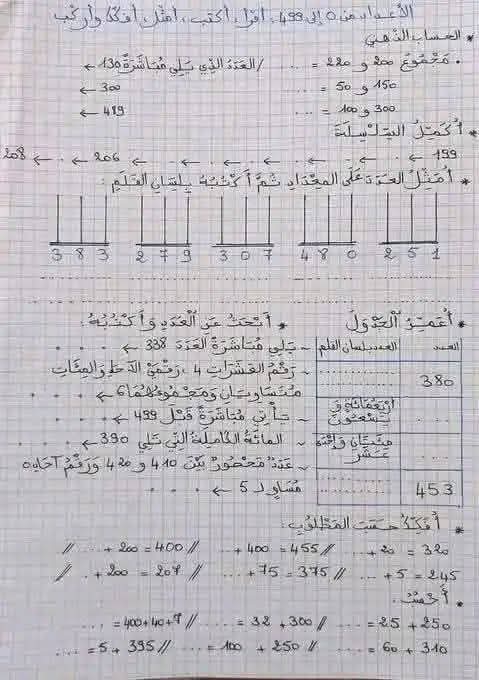 الأعداد من 0 إلى 499، أقرأ، أكتب، أمثل، أفكك وأركب
* الحساب الذهني
. مجموع 200 و 220 = .... /العدد الذي يلي مباشرة 130 ←
150 و 50 = .... 300 ←
300 و 100 = .... 489 ←
* أكمل السلسلة
199 ← . ← . ← . ← . ← . ← 206 ← . ← 208
* أمثل العدد على المعداد ثم أكتبه بلسان القلم :
251 480 307 279 383
* أعمر الجدول * أبحث عن العدد وأكتبه :
العدد العدد بلسان القلم
380 ............
.... أربعمائة و تسعون
.... مئتان وإحدى عشر
453 ............
ـ يلي مباشرة العدد 338 ← ....
ـ رقم العشرات 4، رقمي الآحاد والمئات
متساويان ومجموعهما 6 ← ....
ـ يأتي مباشرة قبل 499 ← ....
ـ المائة الكاملة التي تلي 390 ← ....
ـ عدد محصور بين 410 و 420 ورقم آحاده
مساو لـ 5 ← ....
* أفكك حسب المطلوب :
320 = 20 + .... // 455 = 400 + .... // 400 = 200 + .... //
245 = 5 + .... // 375 = 75 + .... // 207 = 200 + .... //
* أحسب :
250 + 25 = .... // 300 + 32 = .... // 7 + 40 + 400 = ....
310 + 60 = .... // 250 + 100 = .... // 395 + 5 = ....